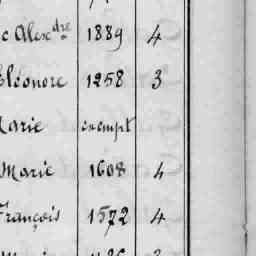 c Alexdre 1889 4
Eléonore 1258 3
Marie exempt
Marie 1608 4
François 1572 4